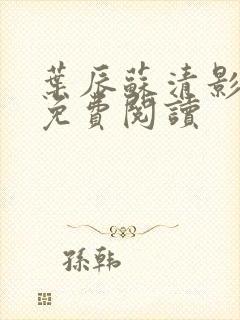 葉辰蘇清影
免費閱讀
孫韓